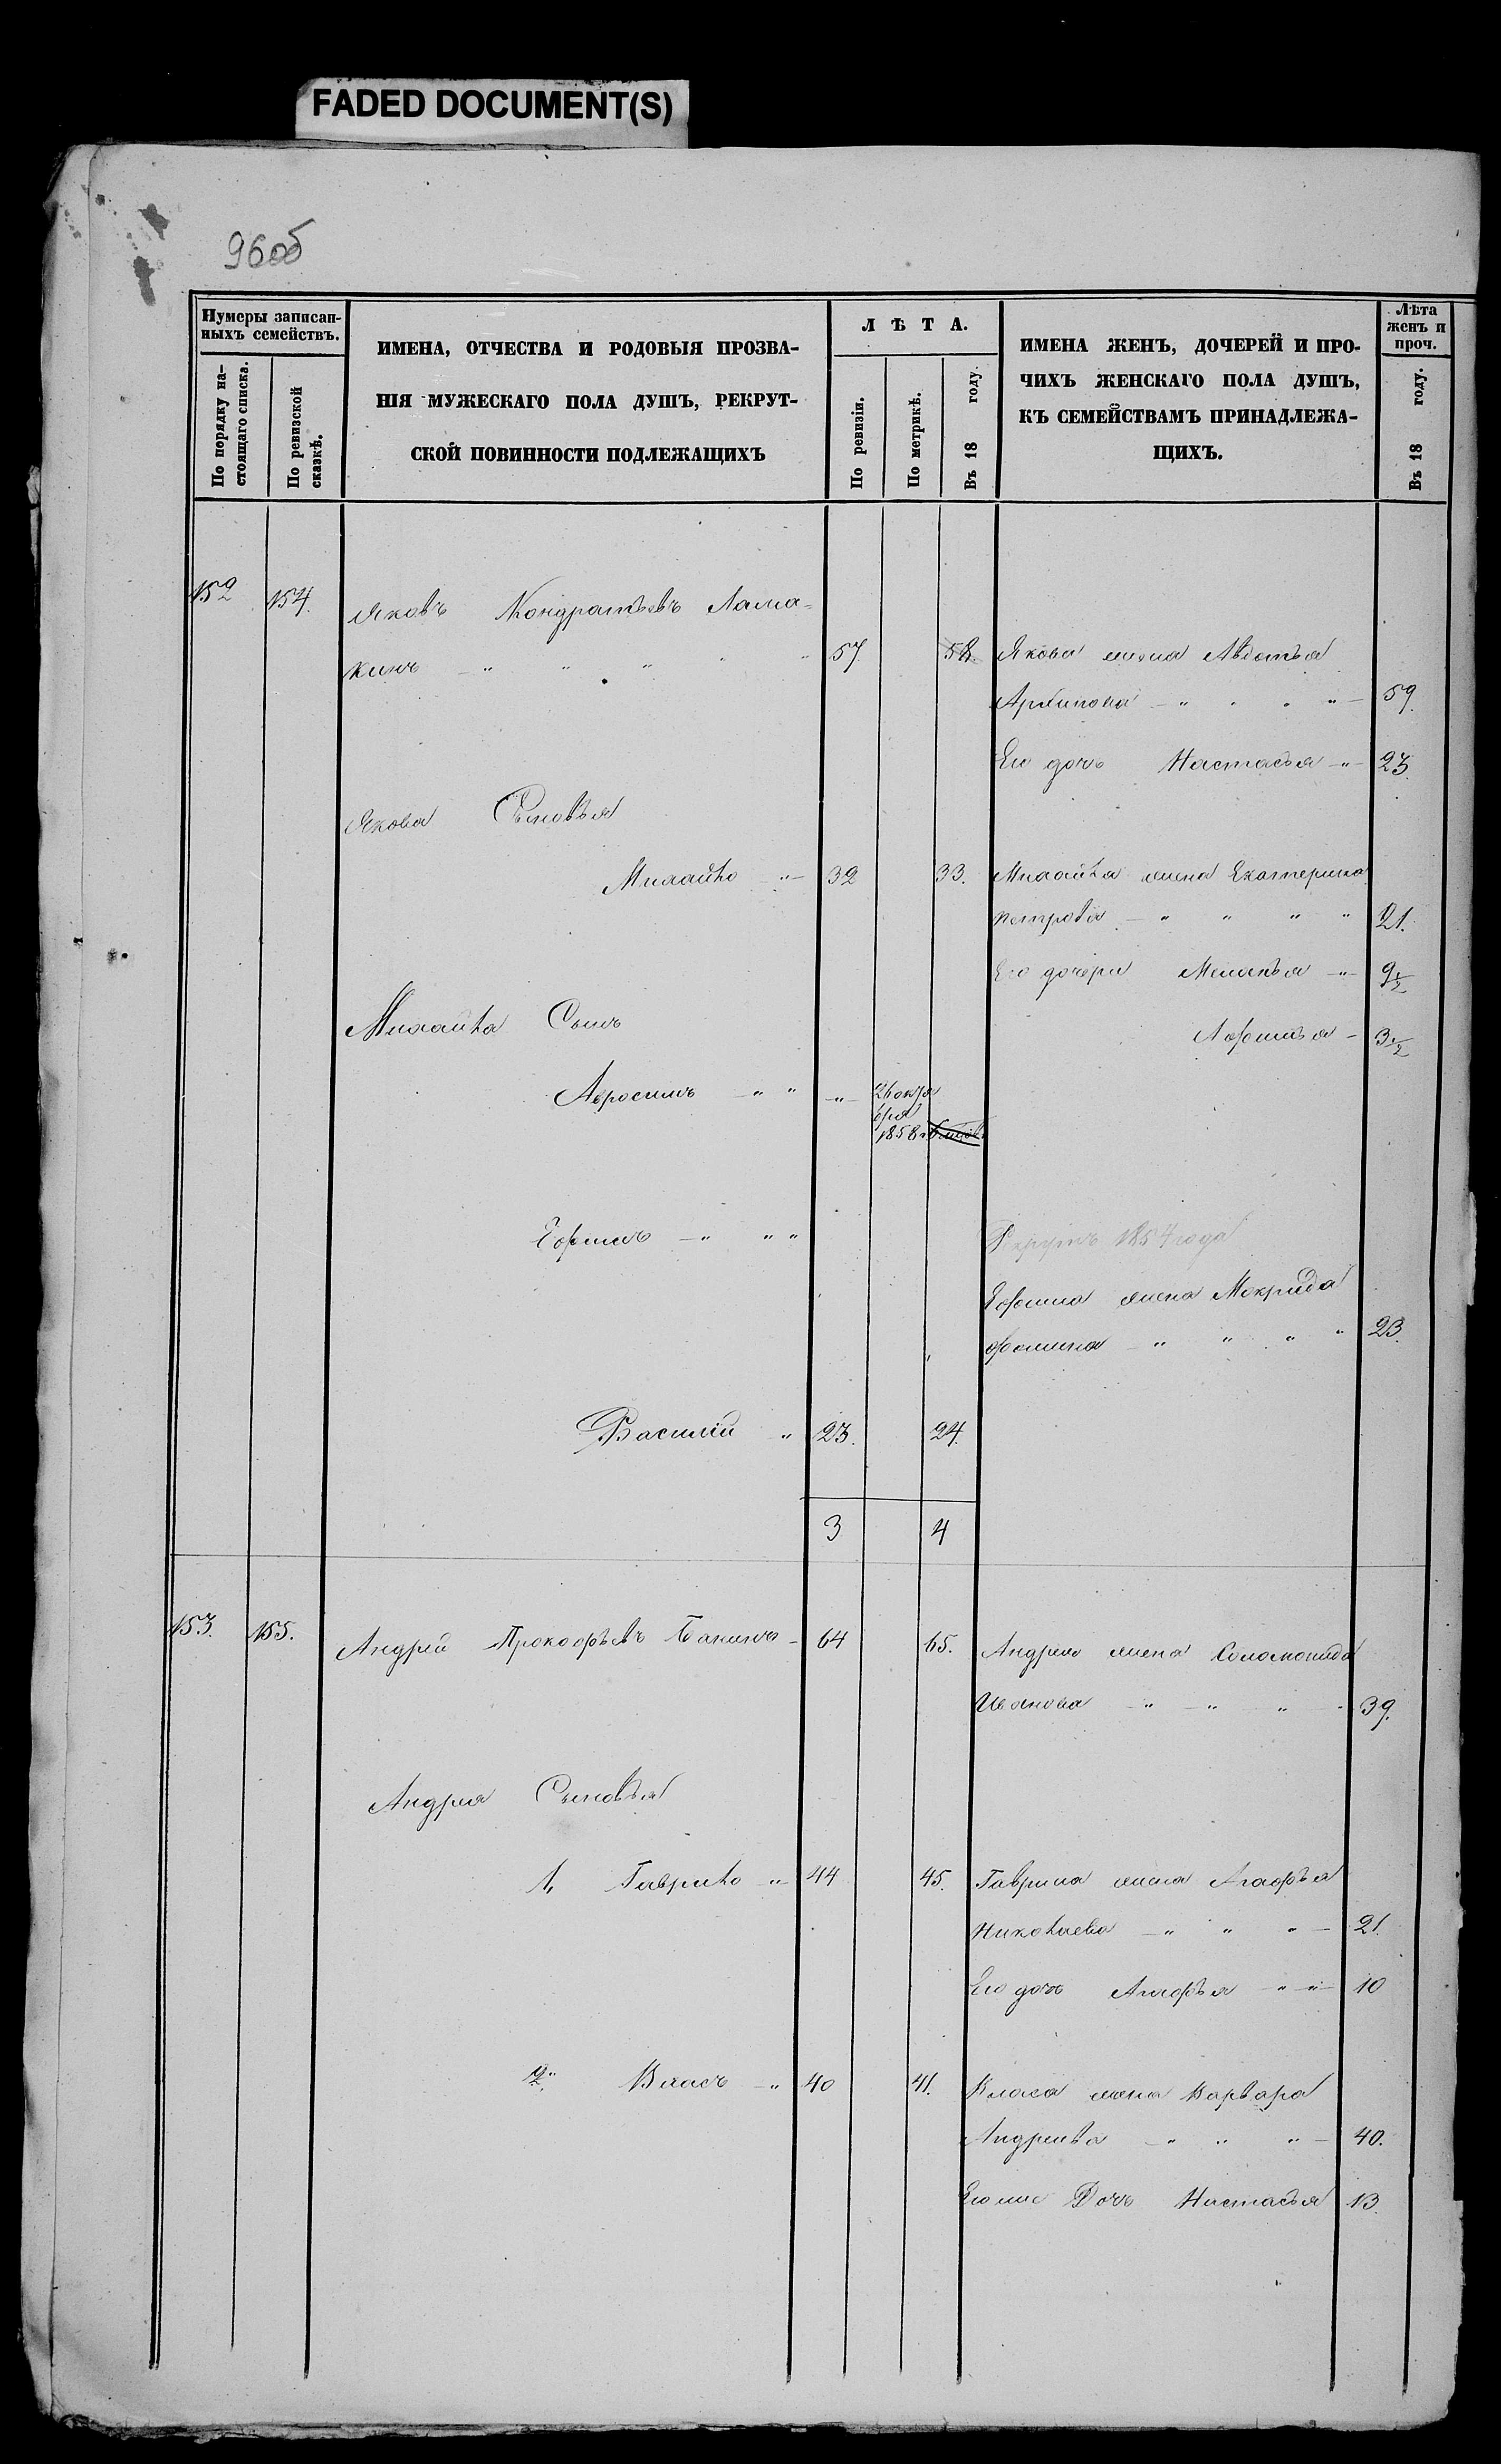 FADED DOCUMENT(S)
96об
Нумеры записан-
ныхъ семействъ.
По порядку на-
стоящаго списка.
По ревизской
сказкѣ.
ИМЕНА, ОТЧЕСТВА И РОДОВЫЯ ПРОЗВА-
НІЯ МУЖЕСКАГО ПОЛА ДУШЪ, РЕКРУТ-
СКОЙ ПОВИННОСТИ ПОДЛЕЖАЩИХЪ
ЛѢТА.
По ревизіи.
По метрикѣ.
Въ 18 году.
ИМЕНА ЖЕНЪ, ДОЧЕРЕЙ И ПРО-
ЧИХЪ ЖЕНСКАГО ПОЛА ДУШЪ,
КЪ СЕМЕЙСТВАМЪ ПРИНАДЛЕЖА-
ЩИХЪ.
Лѣта
женъ и
проч.
Въ 18 году.
152 154. Яковъ Кондратьевъ Лама-
кинъ - " " " " 57. 58. Якова жена Авдотья
Архипова - " " " " - 59.
Его дочь Настасья - " - 23.
Якова Сыновья
Михайло - " - 32 33. Михайла жена Екатерина
Петрова - " " " " 21.
Его дочери Меланья - " - 9½
Михайла Сынъ
Афимья - 3½
Абросимъ - " " - " - 26 октя
бря
1858
Ефимъ - " " " Рекрутъ 1854 года
Ефима жена Мокрида
Фомина - " " " " 23.
Василій " 23. 24.
3 4
153. 155. Андрей Прокофьевъ Банинъ - 64 65. Андрея жена Соломонида
Иванова - " - " " - 39.
Андрея Сыновья
1, Гаврило - " - 44 45. Гаврила жена Агафья
Николаева - " " " - 21.
Его дочь Агафья - " - " - 10
2, Власъ - " 40 41. Власа жена Варвара
Андреева - " " " - 40.
Его же Дочь Настасья 13.